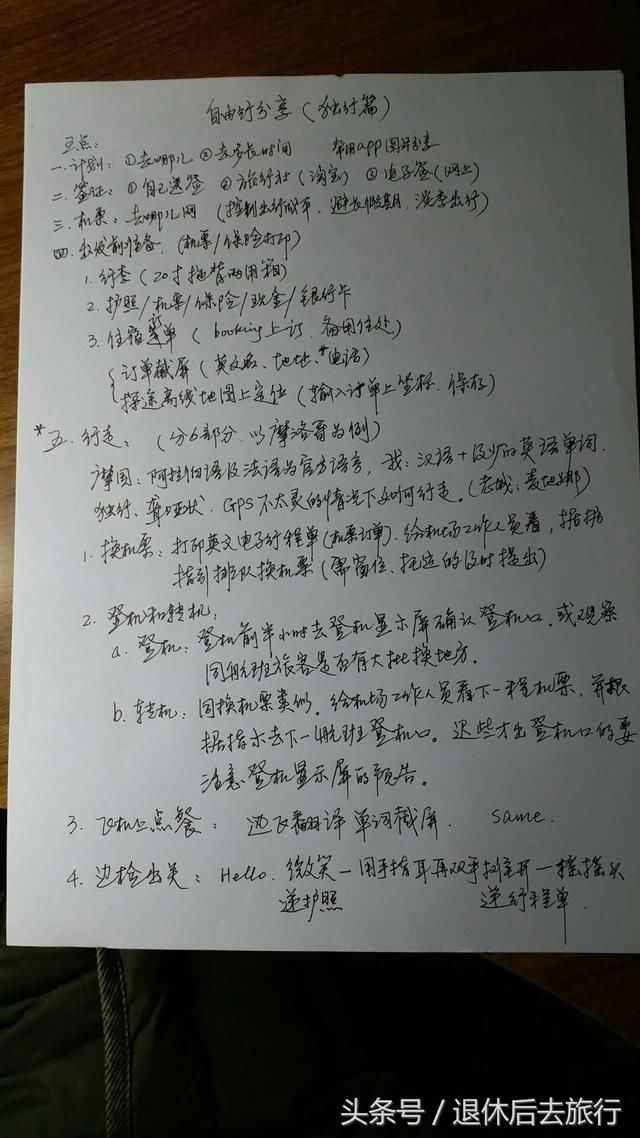 自由行分享（独行篇）
五点：
一.计划：①去哪儿 ②去多长时间 常用app图片分享
二.签证：①自己送签 ②旅行社（淘宝） ③电子签（网上）
三.机票：去哪儿网（控制出行成本、避长假期、淡季出行）
四.出发前准备：（机票/保险打印）
1.行李（20寸拖背两用箱）
2.护照/机票/保险/现金/银行卡
3.住宿订单（booking上订、备用住处）
订单截屏（英文名、地址、*电话）
探途离线地图上定位（输入订单上坐标、保存）
*五.行走：（分6部分.以摩洛哥为例）
摩国：阿拉伯语及法语为官方语言，我：汉语+极少的英语单词.
独行、聋哑状、GPS不太灵的情况下如何行走。（老城：麦地娜）
1.换机票：打印英文电子行程单（机票订单）.给机场工作人员看，据指
指引排队换机票（需窗位、托运的及时提出）
2.登机和转机：
a.登机：登机前半小时去登机显示屏确认登机口.或观察
同航班旅客是否有大批换地方.
b.转机：同换机票类似.给机场工作人员看下一程机票.并根
据指示去下一航班登机口。迟些才出登机口的要
注意登机显示屏的预告。
3.飞机上点餐：迅飞翻译单词截屏. same.
4.边检出关：Hello.微笑—用手指耳再双手打开—摇摇头
递护照 递行程单.
头条号/退休后去旅行